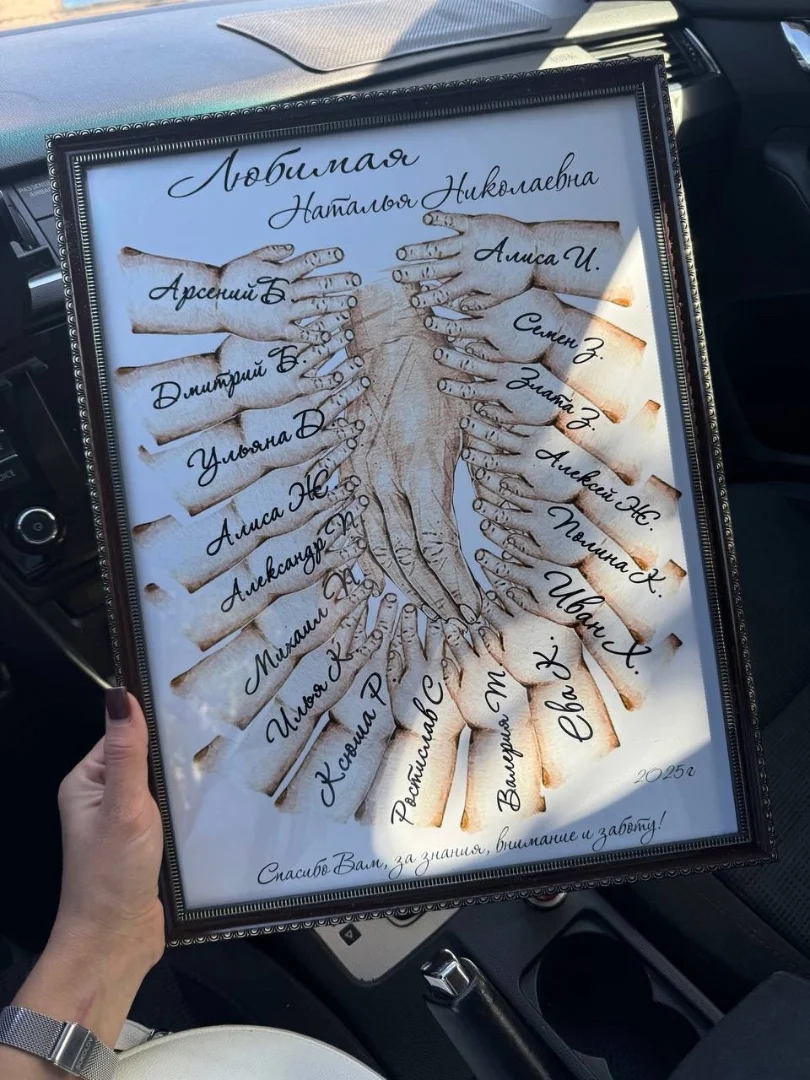 Любимая
Наталья Николаевна
Арсений Б.
Дмитрий Б.
Ульяна Д
Алиса Ж.
Александр П.
Михаил
Илья К
Ксюша Р
Ростислав С
Валерия Т.
Ева К.
Иван Х.
Полина К.
Алексей Ж.
Злата З.
Семен З.
Алиса И.
2025г
Спасибо Вам, за знания, внимание и заботу!